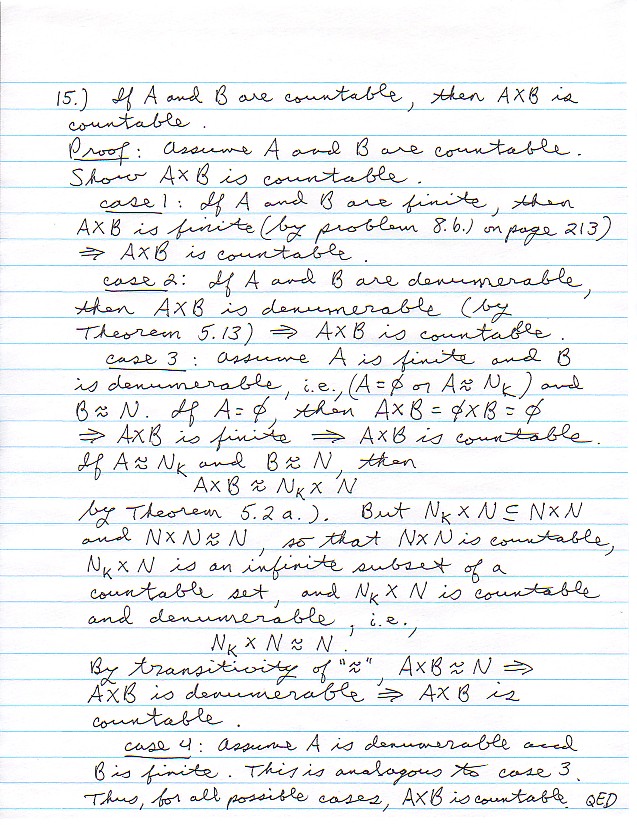 15.) If A and B are countable, then A×B is
countable.
Proof: Assume A and B are countable.
Show A×B is countable.
case 1: If A and B are finite, then
A×B is finite (by problem 8.b.) on page 213)
⇒ A×B is countable.
case 2: If A and B are denumerable,
then A×B is denumerable (by
Theorem 5.13) ⇒ A×B is countable.
case 3: Assume A is finite and B
is denumerable, i.e., (A=∅ or A≈Nₖ) and
B≈N. If A=∅, then A×B=∅×B=∅
⇒ A×B is finite ⇒ A×B is countable.
If A≈Nₖ and B≈N, then
A×B ≈ Nₖ×N
by Theorem 5.2a.). But Nₖ×N⊆N×N
and N×N≈N, so that N×N is countable,
Nₖ×N is an infinite subset of a
countable set, and Nₖ×N is countable
and denumerable, i.e.,
Nₖ×N≈N.
By transitivity of "≈", A×B≈N ⇒
A×B is denumerable ⇒ A×B is
countable.
case 4: Assume A is denumerable and
B is finite. This is analogous to case 3.
Thus, for all possible cases, A×B is countable. QED